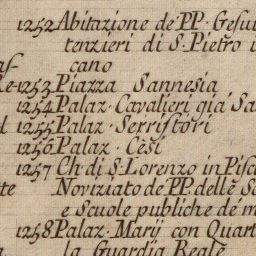 1252 Abitazione de PP. Gesui
tenzieri di S. Pietro i
cano
1253 Piazza Sannesia
1254 Palaz. Cavalieri già Sa
1255 Palaz. Serristori
1256 Palaz. Cesi
1257 Ch. di S. Lorenzo in Pisc
Noviziato de PP. delle Sc
e Scuole publiche de m
1258 Palaz. Marij con Quart
la Guardia Reale